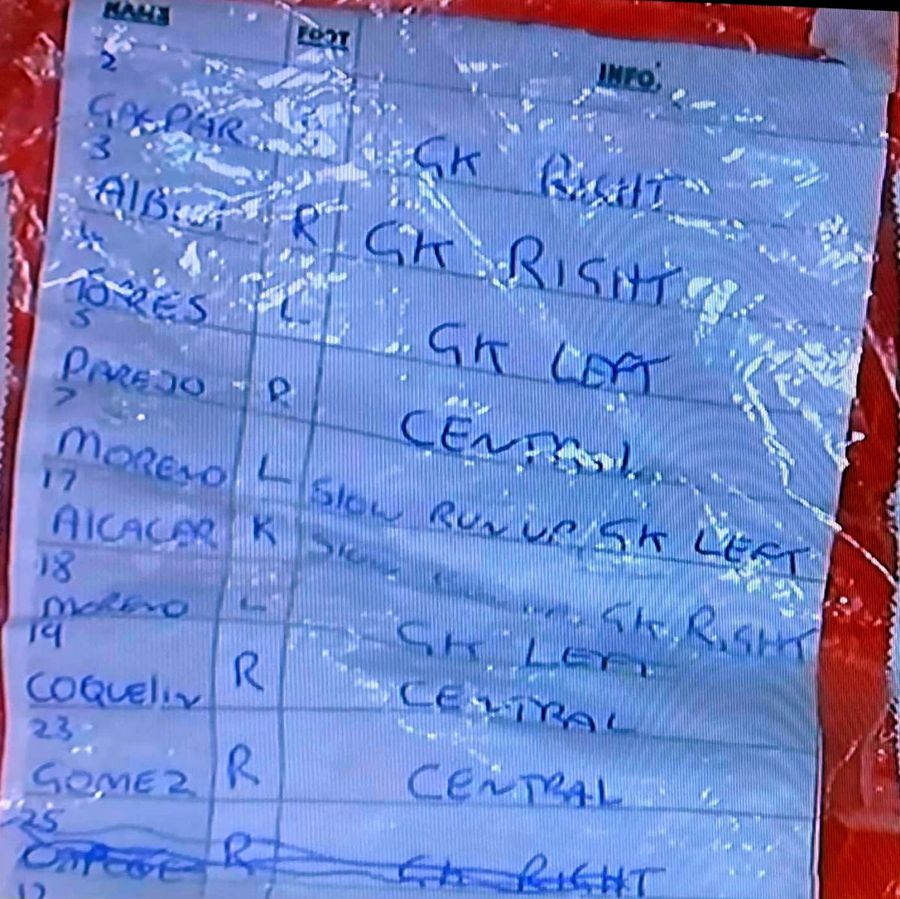 NAME FOOT INFO.
2
GASPAR GK RIGHT
3
AlBiol R GK RIGHT
4
TORRES L GK LEFT
5
PAREJO R CENTRAL
7
MORENO L SLOW RUN UP, GK LEFT
17
AlCACAR R GK RIGHT
18
MORENO L GK LEFT
19
COQUELIN R CENTRAL
23
GOMEZ R CENTRAL
25
R GK RIGHT